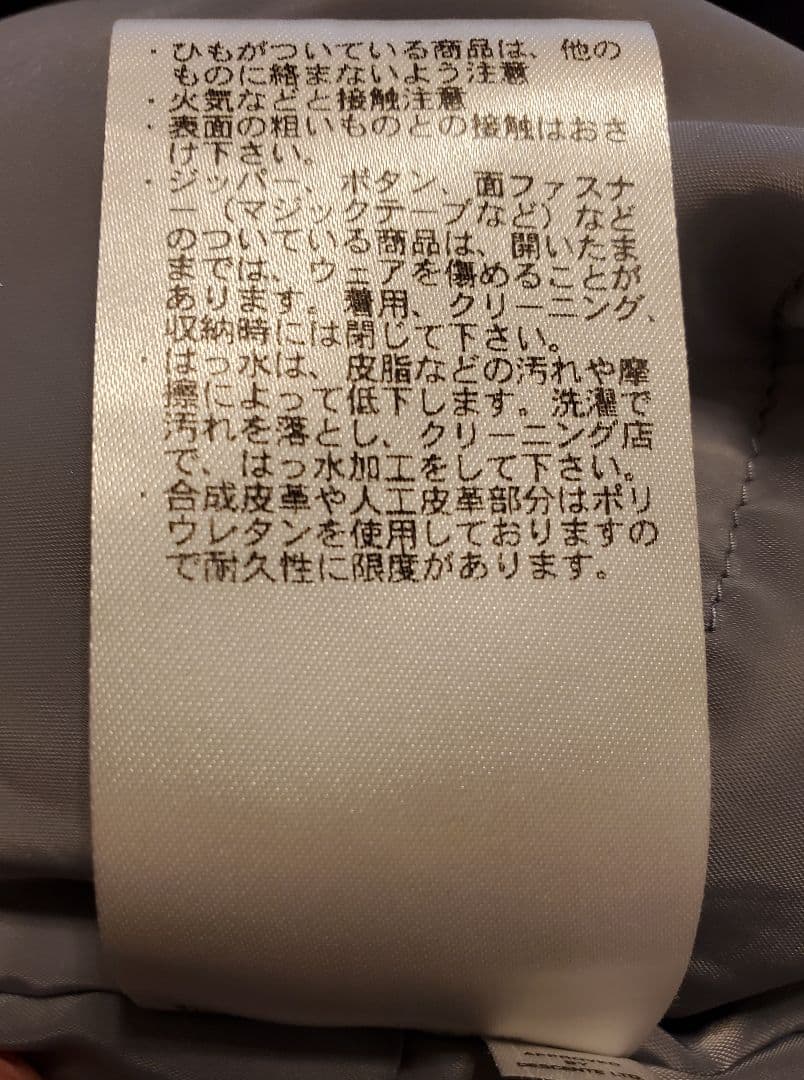 ・ひもがついている商品は、他の
ものに絡まないよう注意
・火気などと接触注意
・表面の粗いものとの接触はおさ
け下さい。
・ジッパー、ボタン、面ファスナ
ー（マジックテープなど）など
のついている商品は、開いたま
までは、ウェアを傷めることが
あります。着用、クリーニング、
収納時には閉じて下さい。
・はっ水は、皮脂などの汚れや摩
擦によって低下します。洗濯で
汚れを落とし、クリーニング店
で、はっ水加工をして下さい。
・合成皮革や人工皮革部分はポリ
ウレタンを使用しておりますの
で耐久性に限度があります。
APPROVED
BY
DESCENTE LTD